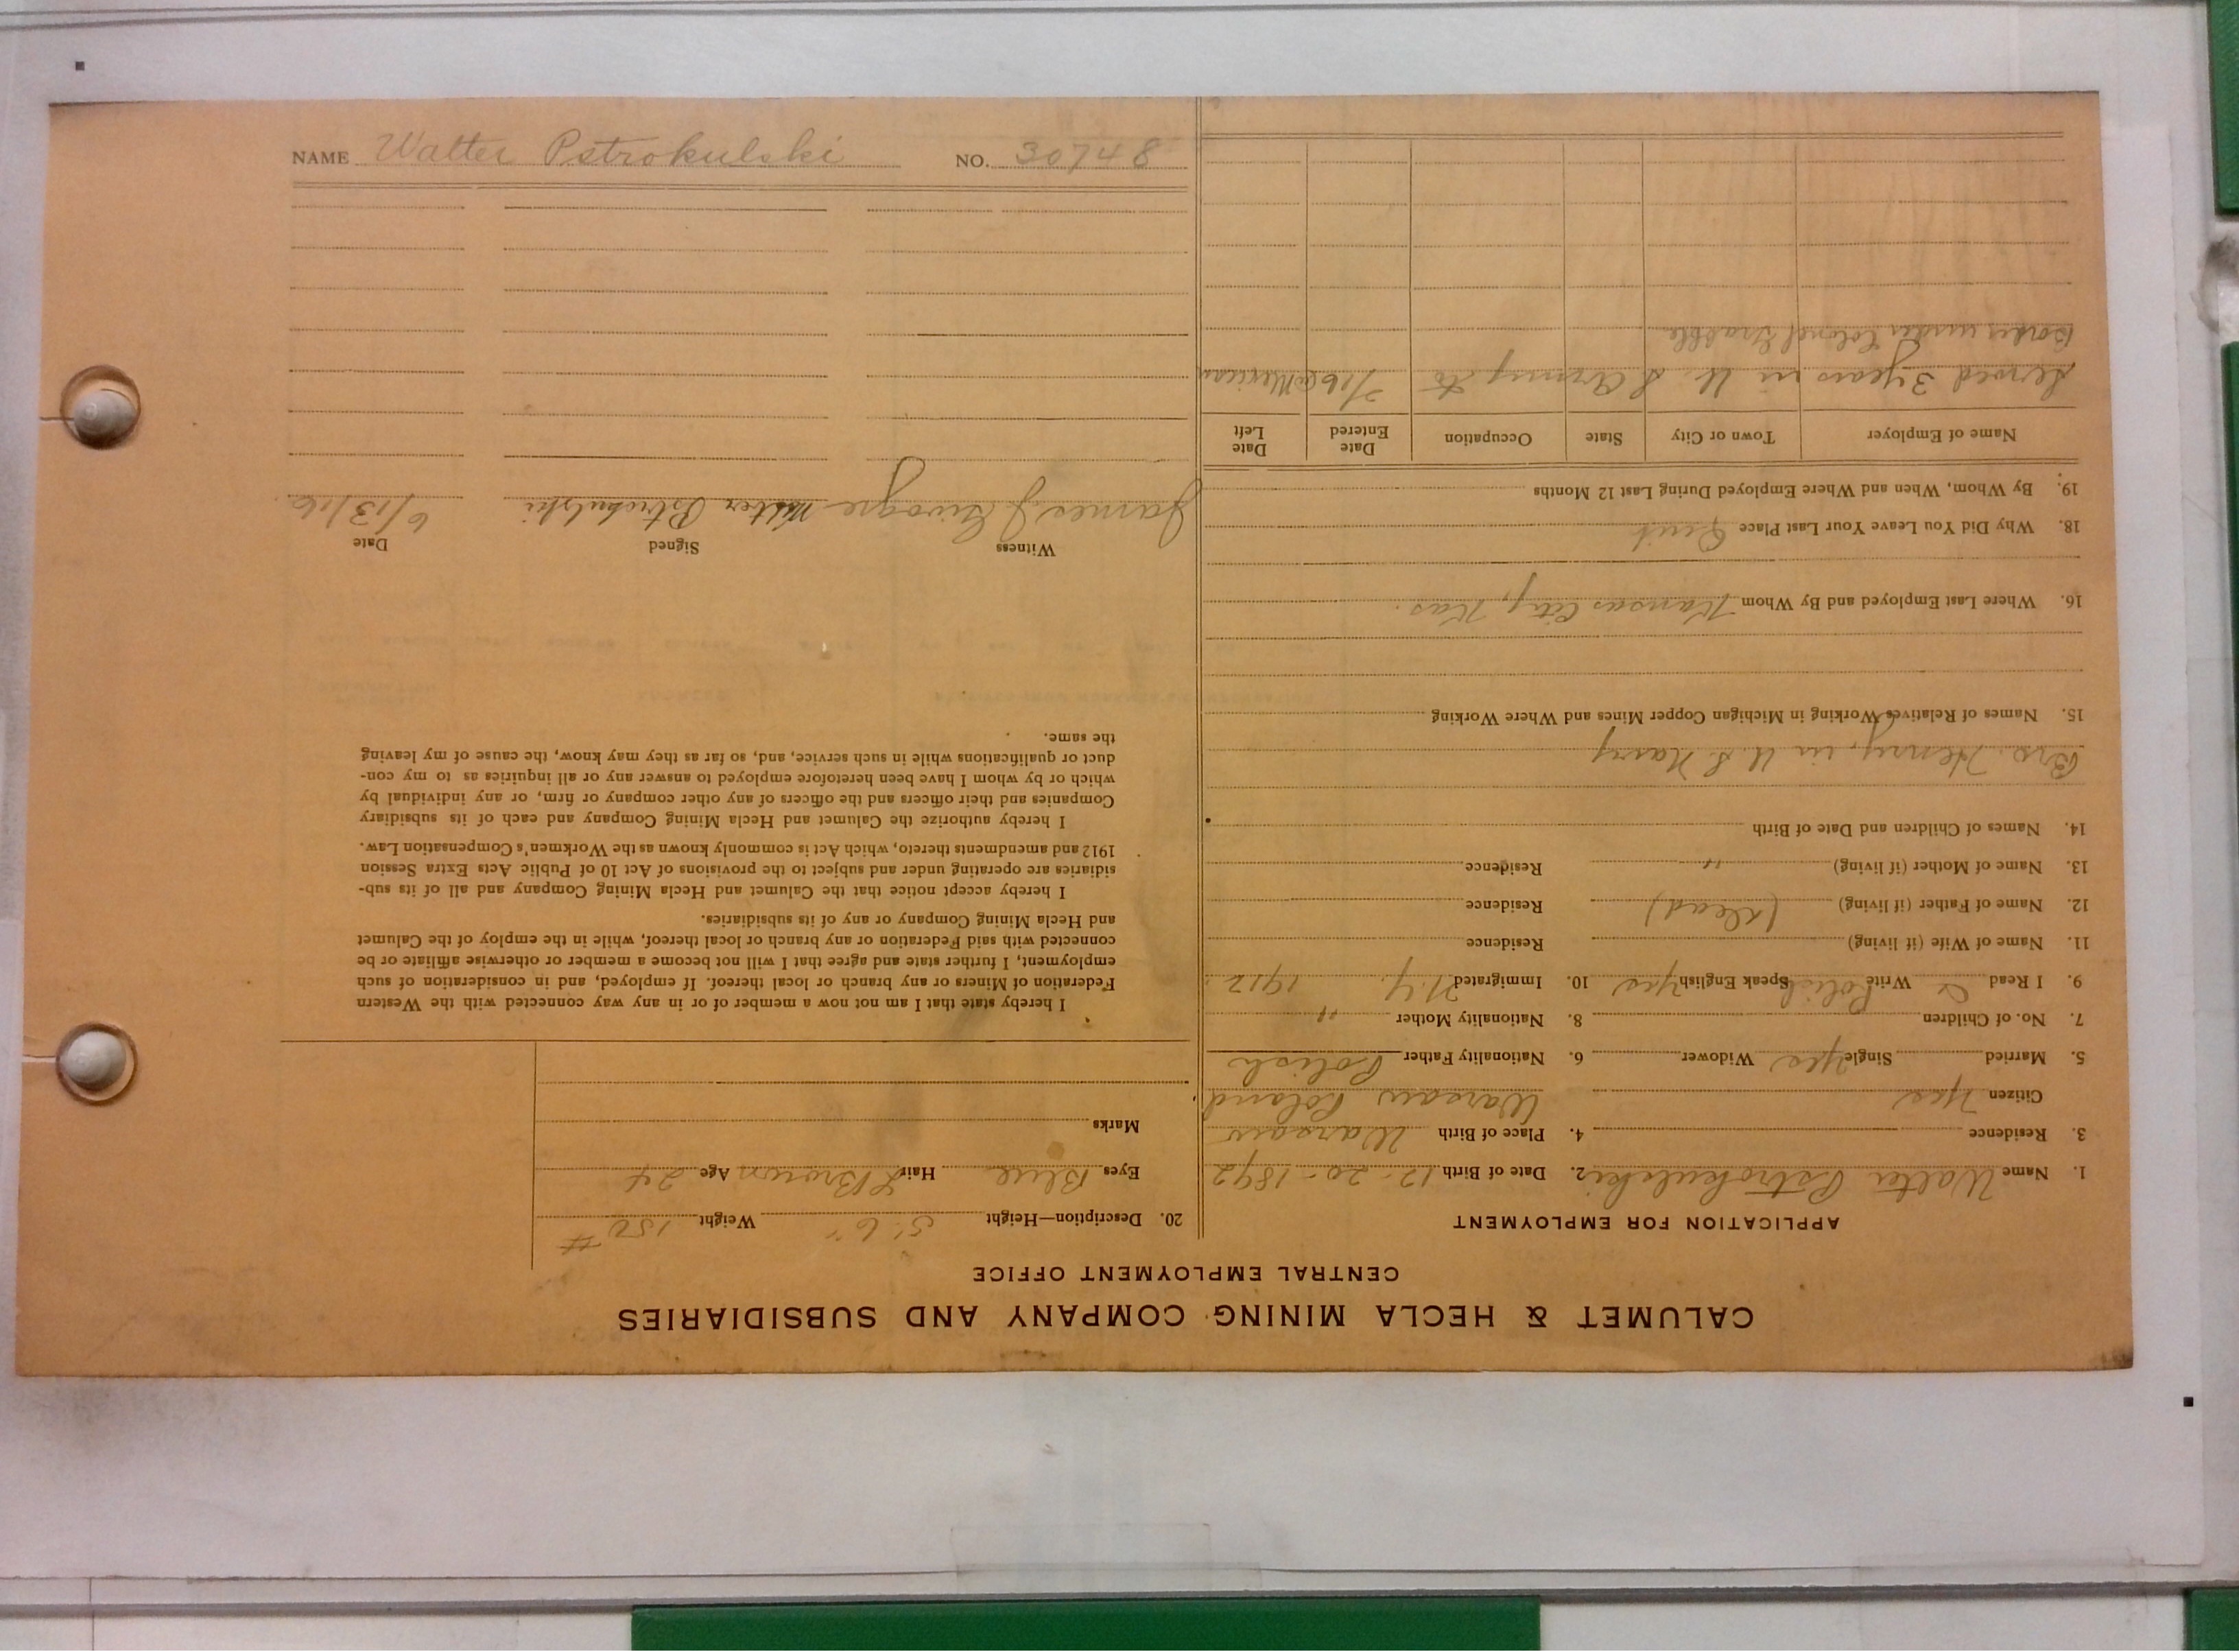 NAME Walter Pstrokulski NO. 30748
CALUMET & HECLA MINING COMPANY AND SUBSIDIARIES
CENTRAL EMPLOYMENT OFFICE
APPLICATION FOR EMPLOYMENT
1. Name Walter Pstrokulski 2. Date of Birth 12-20-1892
3. Residence 4. Place of Birth Warsaw
Citizen Yes Warsaw Poland
5. Married Single Yes Widower 6. Nationality Father Polish
7. No. of Children 8. Nationality Mother "
9. I Read & Write Polish Speak English Yes 10. Immigrated N.Y. 1912
11. Name of Wife (if living) Residence
12. Name of Father (if living) (dead) Residence
13. Name of Mother (if living) " Residence
14. Names of Children and Date of Birth
Bro. Henry, in U.S Navy
15. Names of Relatives Working in Michigan Copper Mines and Where Working
16. Where Last Employed and By Whom Kansas City, Kas.
18. Why Did You Leave Your Last Place Quit
19. By Whom, When and Where Employed During Last 12 Months
Name of Employer Town or City State Occupation Date Entered Date Left
Served 3 years in U. S Army to 2/16 @ Mexican
Border under Colonel
20. Description—Height 5' 6" Weight 150 #
Eyes Blue Hair L Brown Age 24
Marks
I hereby state that I am not now a member of or in any way connected with the Western
Federation of Miners or any branch or local thereof. If employed, and in consideration of such
employment, I further state and agree that I will not become a member or otherwise affiliate or be
connected with said Federation or any branch or local thereof, while in the employ of the Calumet
and Hecla Mining Company or any of its subsidiaries.
I hereby accept notice that the Calumet and Hecla Mining Company and all of its sub-
sidiaries are operating under and subject to the provisions of Act 10 of Public Acts Extra Session
1912 and amendments thereto, which Act is commonly known as the Workmen's Compensation Law.
I hereby authorize the Calumet and Hecla Mining Company and each of its subsidiary
Companies and their officers and the officers of any other company or firm, or any individual by
which or by whom I have been heretofore employed to answer any or all inquiries as to my con-
duct or qualifications while in such service, and, so far as they may know, the cause of my leaving
the same.
Witness Signed Date
James J Walter Pstrokulski 6/13/16